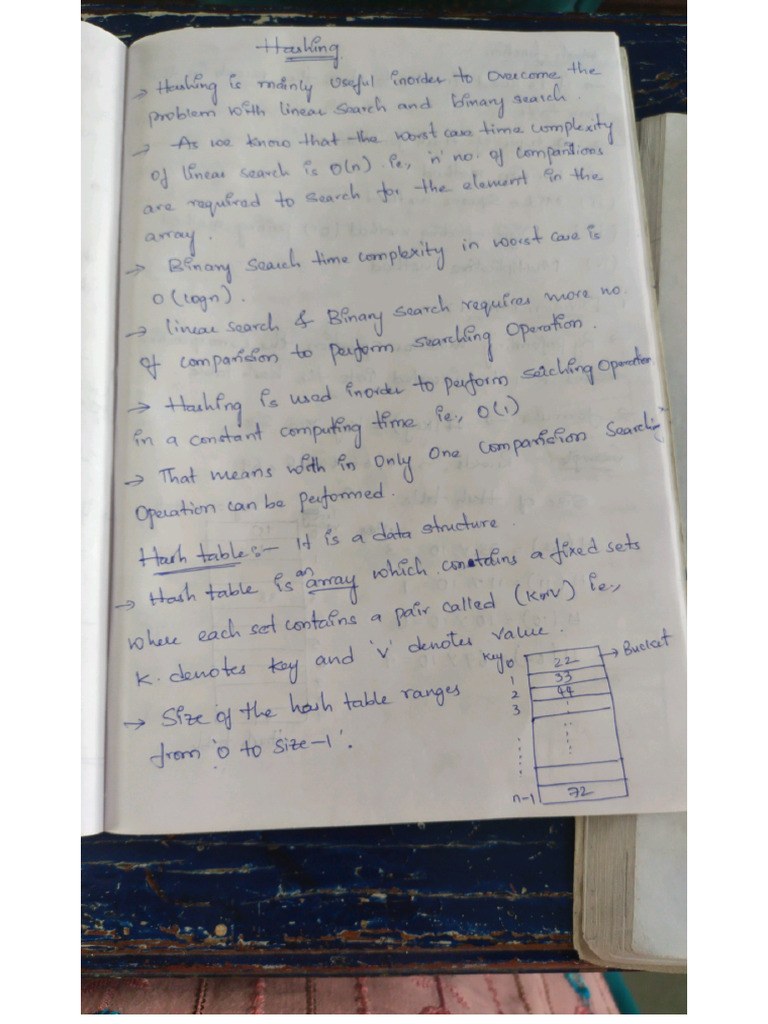 Hashing
→ Hashing is mainly useful inorder to overcome the
problem with linear search and binary search.
→ As we know that the worst case time complexity
of linear search is O(n) ie, 'n' no. of comparisions
are required to search for the element in the
array.
→ Binary Search time complexity in worst case is
O(logn).
→ linear search & Binary search requires more no.
of comparision to perform searching operation.
→ Hashing is used inorder to perform seaching operation
in a constant computing time ie., O(1)
→ That means with in only one comparision searching
operation can be performed.
Hash table:- It is a data structure.
→ Hash table is an array which contains a fixed sets
where each set contains a pair called (K,V) ie.,
K. denotes key and 'v' denotes value.
→ Size of the hash table ranges
from '0 to size-1'.
key 0 22 → Bucket
1 33
2 44
3
n-1 72